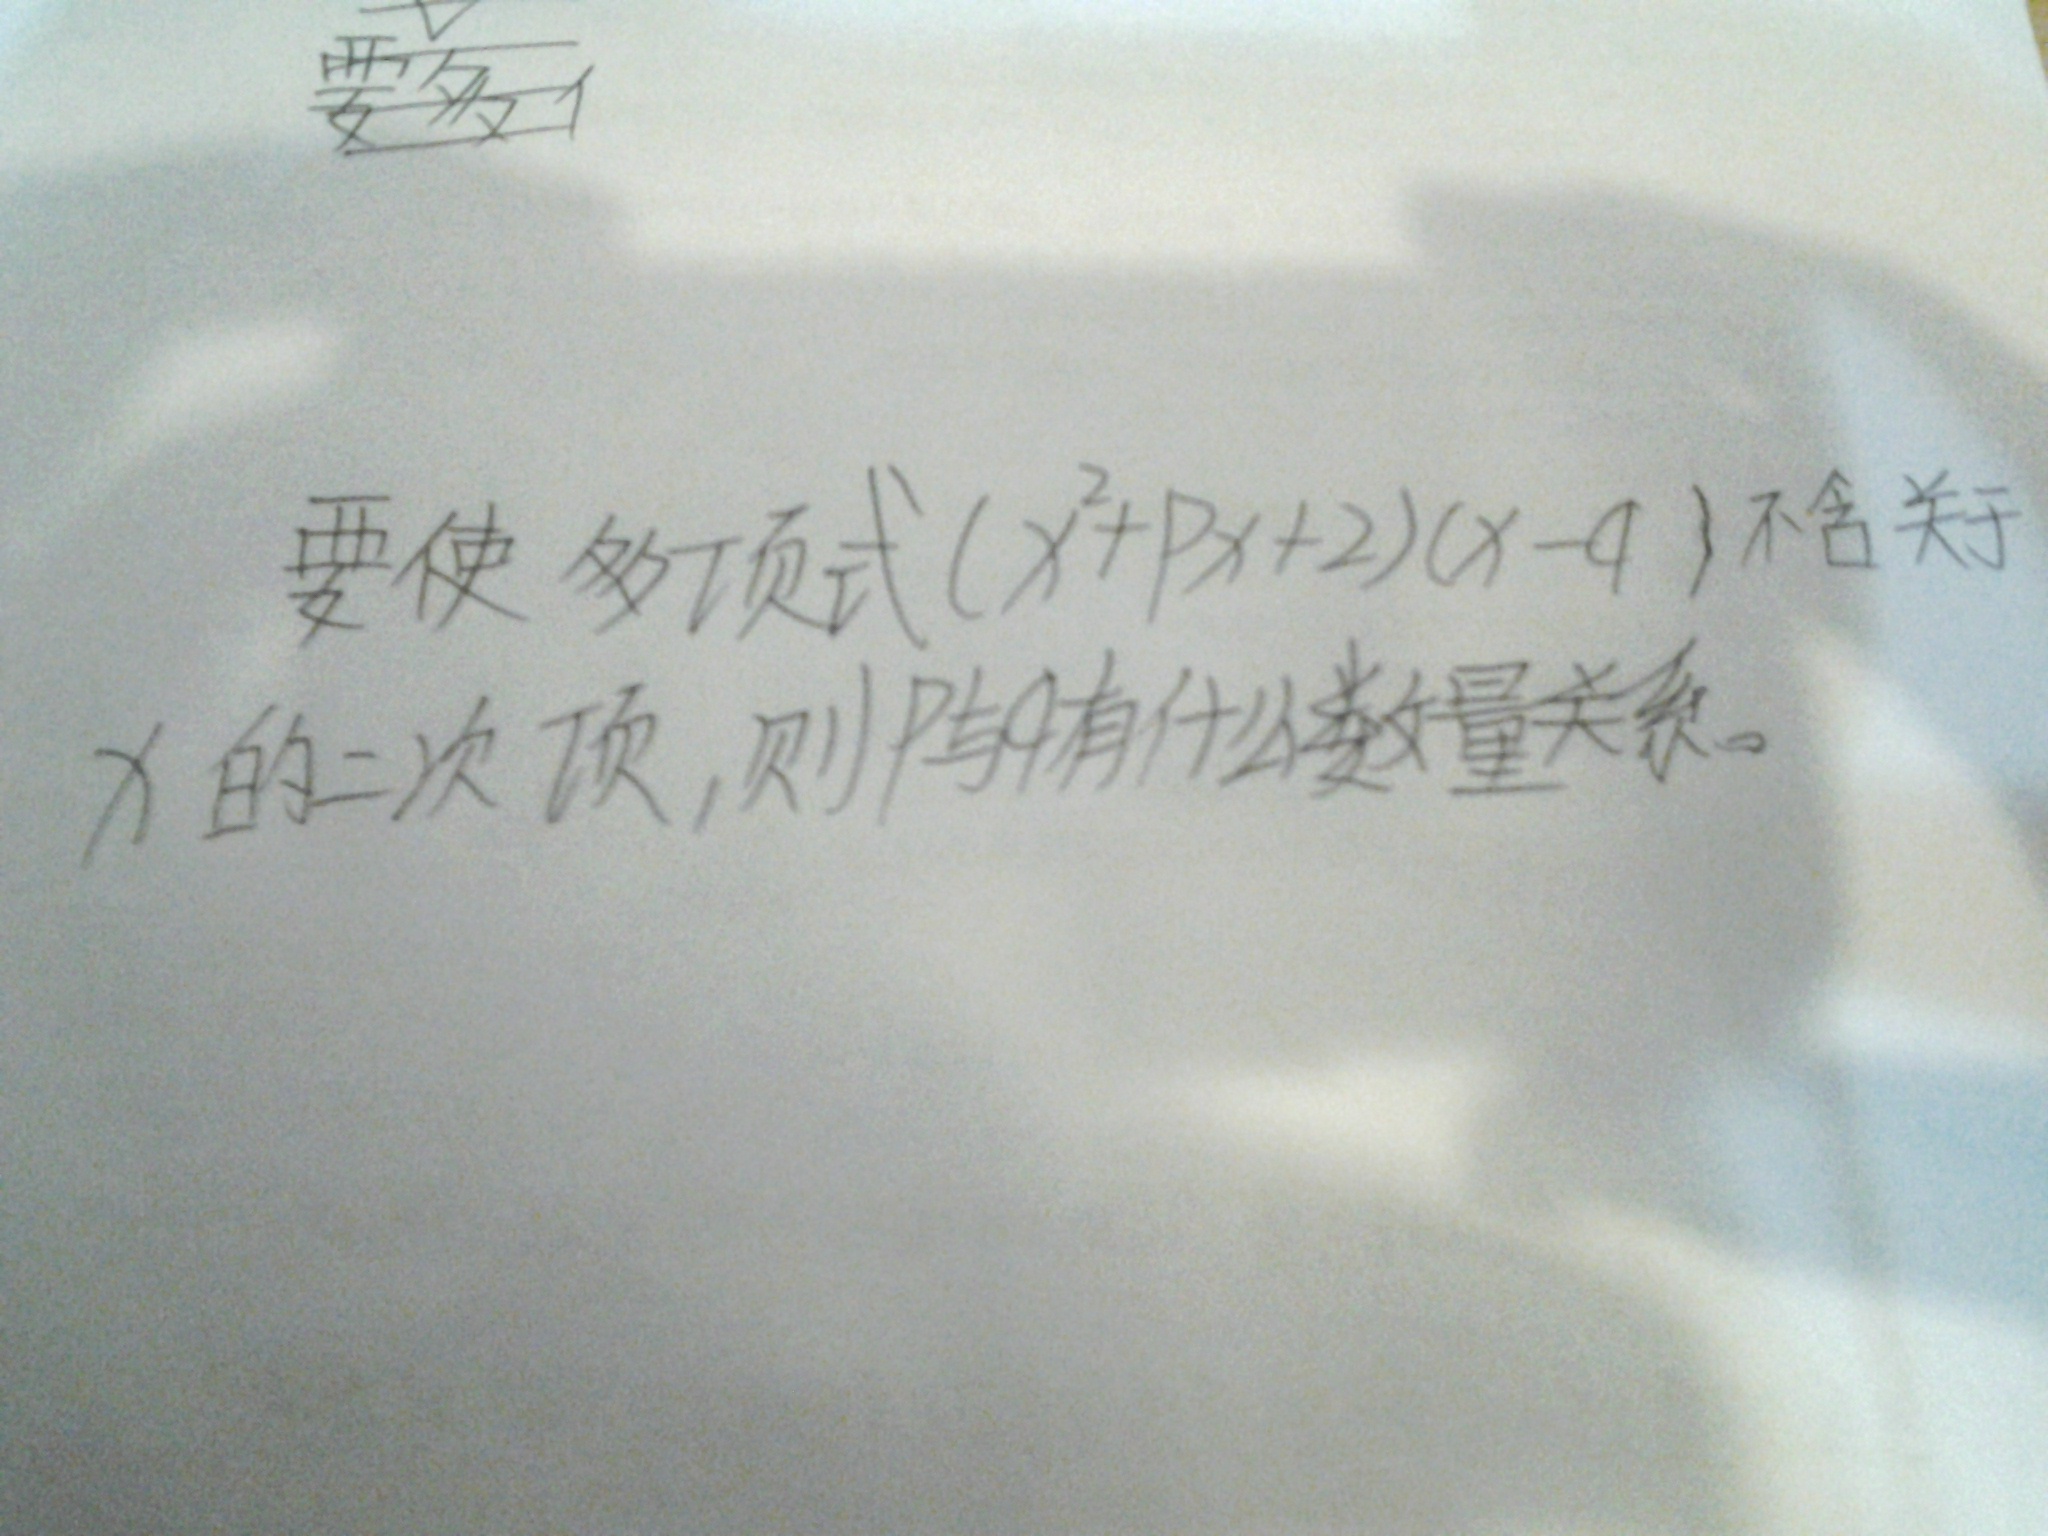 要多
要使多项式(x²+px+2)(x-q)不含关于
x的二次项,则p与q有什么数量关系。